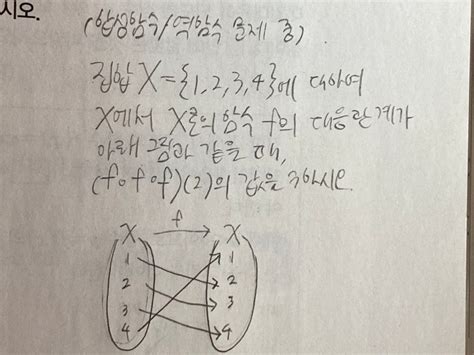 시오.
(합성함수/역함수 문제 중)
집합 X={1,2,3,4}에 대하여
X에서 X로의 함수 f의 대응관계가
아래 그림과 같을 때,
(f∘f∘f)(2)의 값을 구하시오.
X f X
1 1
2 2
3 3
4 4